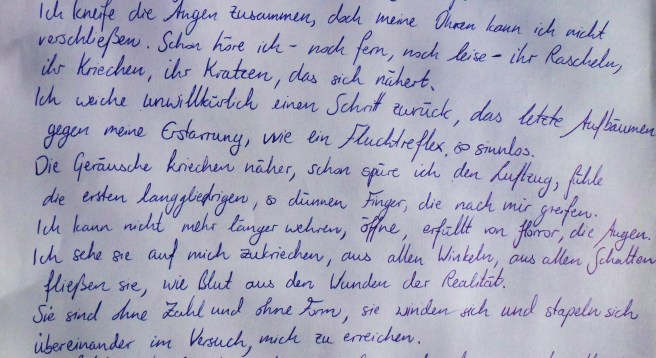 Ich kneife die Augen zusammen, doch meine Ohren kann ich nicht
verschließen. Schon höre ich - noch fern, noch leise - ihr Rascheln,
ihr Kriechen, ihr Kratzen, das sich nähert.
Ich weiche unwillkürlich einen Schritt zurück, das letzte Aufbäumen
gegen meine Erstarrung, wie ein Fluchtreflex, so sinnlos.
Die Geräusche kriechen näher, schon spüre ich den Luftzug, fühle
die ersten langgliedrigen, so dünnen Finger, die nach mir greifen.
Ich kann nicht mehr länger wehren, öffne, erfüllt von Horror, die Augen.
Ich sehe sie auf mich zukriechen, aus allen Winkeln, aus allen Schatten
fließen sie, wie Blut aus den Wunden der Realität.
Sie sind ohne Zahl und ohne Form, sie winden sich und stapeln sich
übereinander im Versuch, mich zu erreichen.